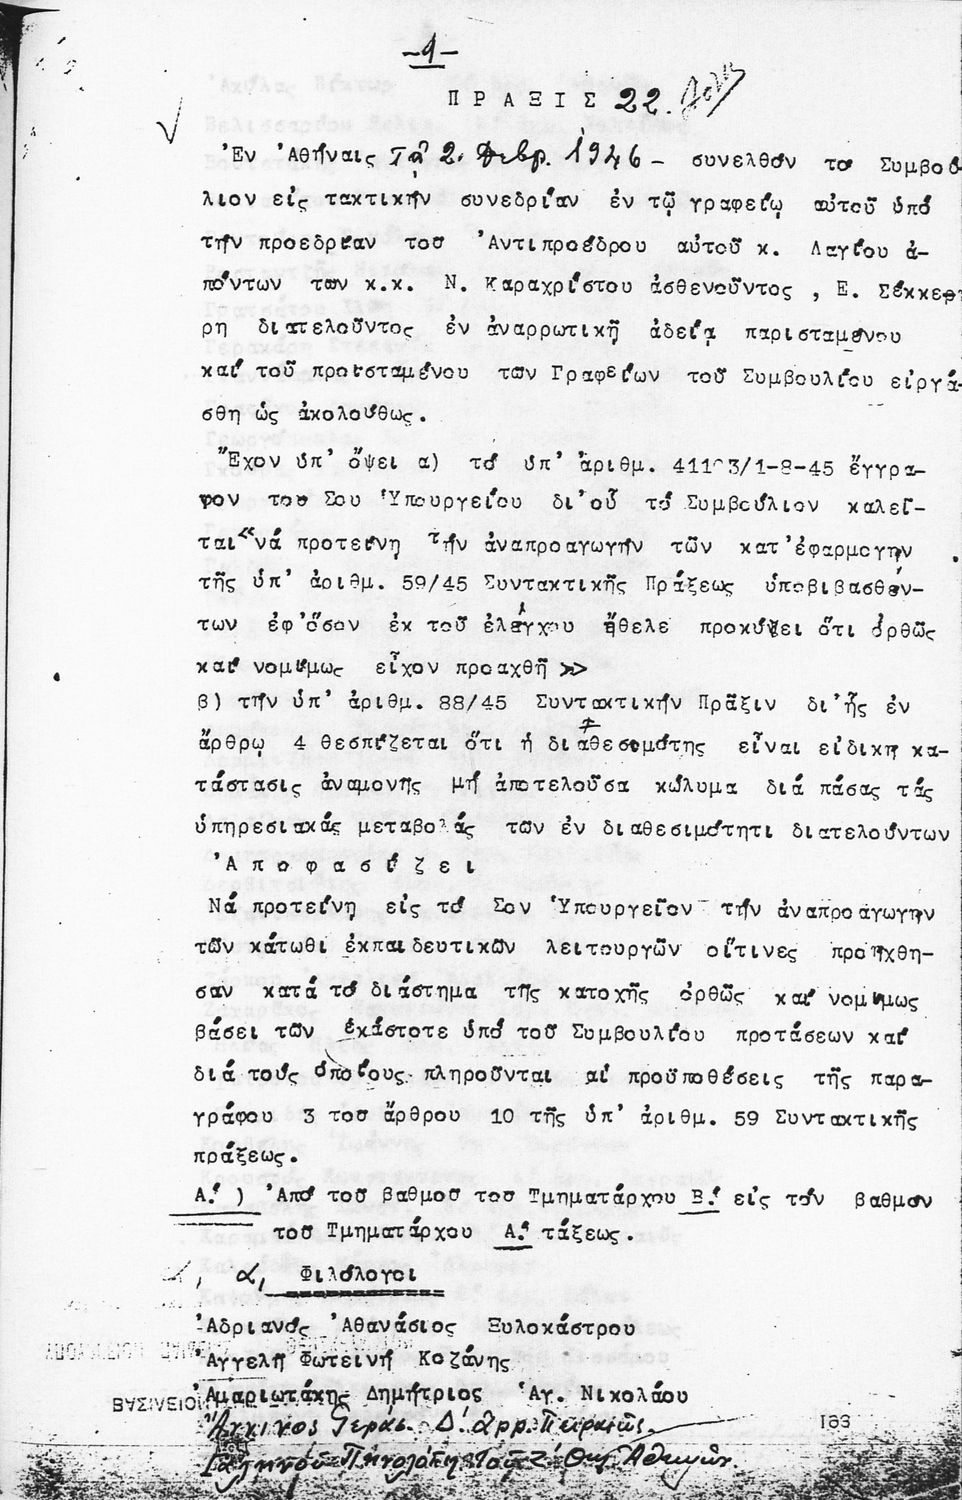 -1-
ΠΡΑΞΙΣ 22.
Ἐν Ἀθήναις τῇ 2. Φεβρ. 1946 - συνελθόν τό Συμβού-
λιον εἰς τακτικήν συνεδρίαν ἐν τῷ γραφείῳ αὐτοῦ ὑπό
τήν προεδρίαν τοῦ Ἀντιπροέδρου αὐτοῦ κ. Λαγίου ἀ-
πόντων τῶν κ.κ. Ν. Καραχρίστου ἀσθενοῦντος , Ε. Σέκκερη
ρη διατελοῦντος ἐν ἀναρρωτικῇ ἀδείᾳ παρισταμένου
καί τοῦ προισταμένου τῶν Γραφείων τοῦ Συμβουλίου εἰργά-
σθη ὡς ἀκολούθως.
Ἔχον ὑπ' ὄψει α) τό ὑπ' ἀριθμ. /1-8-45 ἔγγρα-
φον τοῦ Σου Ὑπουργείου δι' οὗ τό Συμβούλιον καλεῖ-
ται "νά προτείνη τήν ἀναπροαγωγήν τῶν κατ' ἐφαρμογήν
τῆς ὑπ' ἀριθμ. 59/45 Συντακτικῆς Πράξεως ὑποβιβασθέν-
των ἐφ' ὅσον ἐκ τοῦ ἐλέγχου ἤθελε προκύψει ὅτι ὀρθῶς
καί νομίμως εἶχον προαχθῆ >>
β) τήν ὑπ' ἀριθμ. 88/45 Συντακτικήν Πρᾶξιν δι' ἧς ἐν
ἄρθρῳ 4 θεσπίζεται ὅτι ἡ διαθεσιμότης εἶναι εἰδική κα-
τάστασις ἀναμονῆς μή ἀποτελοῦσα κώλυμα διά πάσας τάς
ὑπηρεσιακάς μεταβολάς τῶν ἐν διαθεσιμότητι διατελούντων
Ἀ π ο φ α σ ί ζ ε ι
Νά προτείνη εἰς τό Σον Ὑπουργεῖον τήν ἀναπροαγωγήν
τῶν κάτωθι ἐκπαιδευτικῶν λειτουργῶν οἵτινες προήχθη-
σαν κατά τό διάστημα τῆς κατοχῆς ὀρθῶς καί νομίμως
βάσει τῶν ἑκάστοτε ὑπό τοῦ Συμβουλίου προτάσεων καί
διά τούς ὁποίους πληροῦνται αἱ προϋποθέσεις τῆς παρα-
γράφου 3 τοῦ ἄρθρου 10 τῆς ὑπ' ἀριθμ. 59 Συντακτικῆς
πράξεως.
Α! ) Ἀπό τοῦ βαθμοῦ τοῦ Τμηματάρχου Β! εἰς τόν βαθμόν
τοῦ Τμηματάρχου Α! τάξεως.
α, Φιλόλογοι
Ἀδριανός Ἀθανάσιος Ξυλοκάστρου
Ἀγγελῆ Φωτεινή Κοζάνης
Ἀμαριωτάκης Δημήτριος Ἁγ. Νικολάου
ΒΑΣΙΛΕΙΟΝ
Ἀγκινος Γεράσ. Δ! ἀρρ. Πειραιῶς.
163
Γαληνοῦ Πηνελόπη Ζ! Θηλ. Ἀθηνῶν.